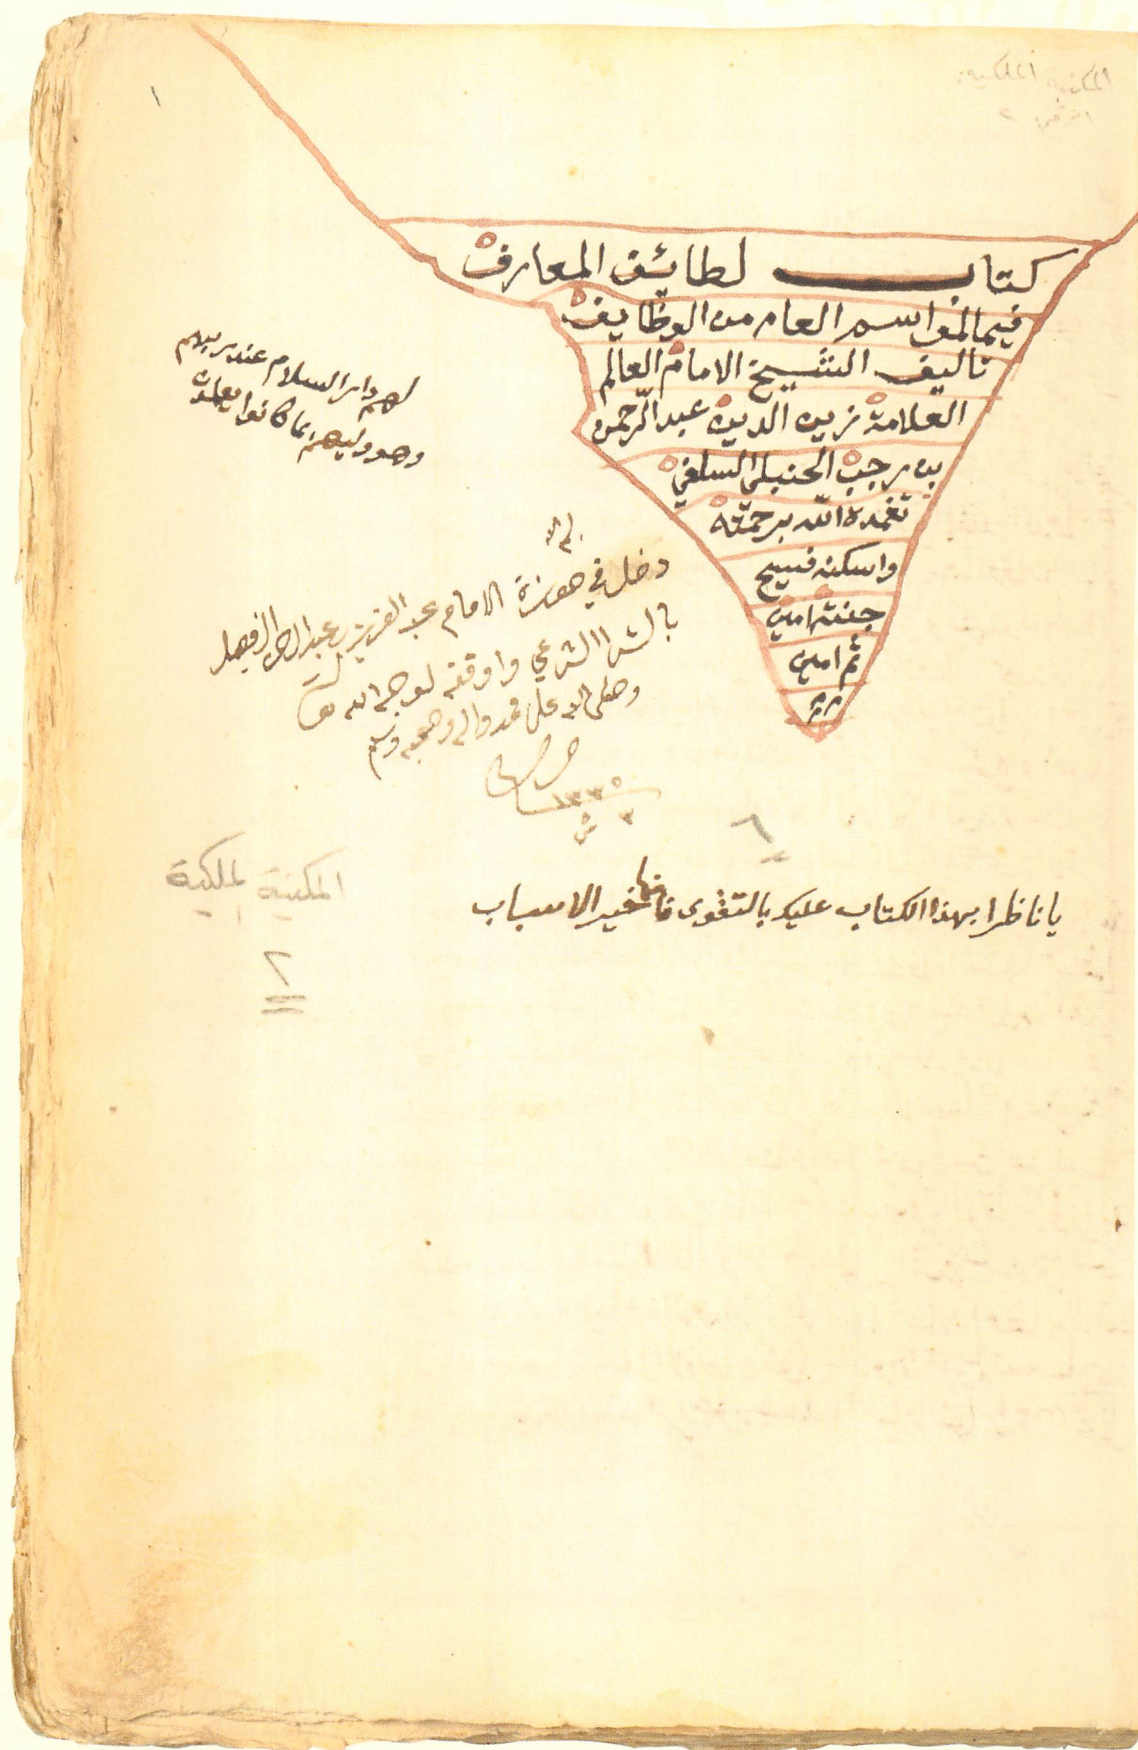 المكتبة الملكية
٢
١
كتاب لطائف المعارف
فيما لمواسم العام من الوظايف
تاليف الشيخ الامام العالم
العلامة زين الدين عبد الرحمن
بن رجب الحنبلي السلفي
تغمده الله برحمته
واسكنه فسيح
جنته امين
ثم امين
م م م
لهم دار السلام عند ربهم
وهو وليهم بما كانوا يعملون
بسم الله
دخل في حوزة الامام عبد العزيز بن عبد الرحمن الفيصل
بالشرا الشرعي واوقفه لوجه الله
وصلى الله على محمد واله وصحبه وسلم
١٣٣٥
٣ ش
٦
يا ناظرا بهذا الكتاب عليك بالتقوى فانها خير الاسباب
المكتبة الملكية
٢